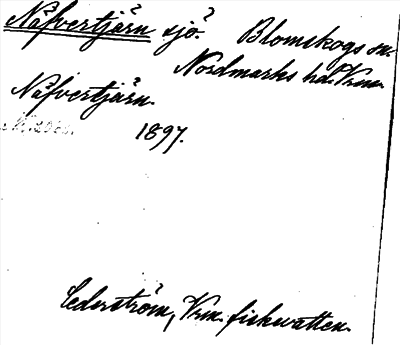 Näfvertjärn sjö? Blomskogs sn.
Nordmarks hd. Vrm.
Näfvertjärn.
1897.
Cederström, Vrm. fiskvatten.